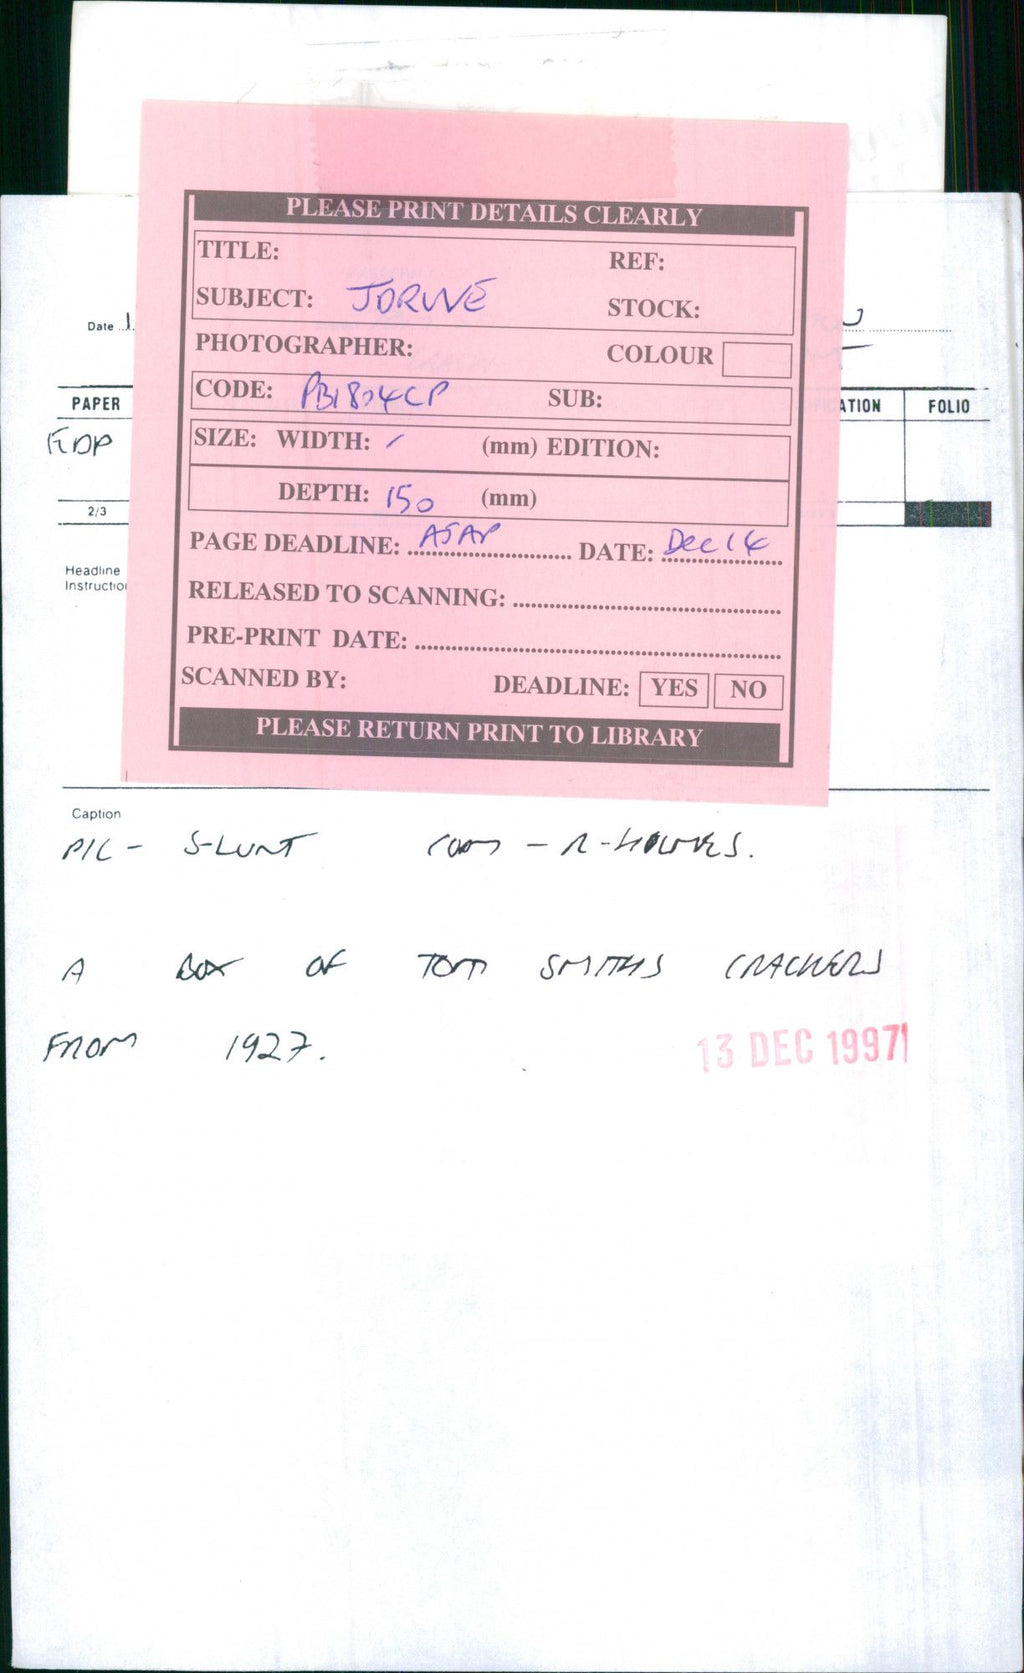 PLEASE PRINT DETAILS CLEARLY
TITLE: REF:
SUBJECT: STOCK:
PHOTOGRAPHER: COLOUR
CODE: PB1804CP SUB:
SIZE: WIDTH: / (mm) EDITION:
DEPTH: 150 (mm)
PAGE DEADLINE: ASAP DATE: Dec 14
RELEASED TO SCANNING:
PRE-PRINT DATE:
SCANNED BY: DEADLINE: YES NO
PLEASE RETURN PRINT TO LIBRARY
Date
PAPER ATION FOLIO
EDP
2/3
Headline
Instructio
Caption
PIC - S-LUNT COM - R-HOLMES.
A BOX OF TOM SMITHS CRACKERS
FROM 1927.
13 DEC 1997